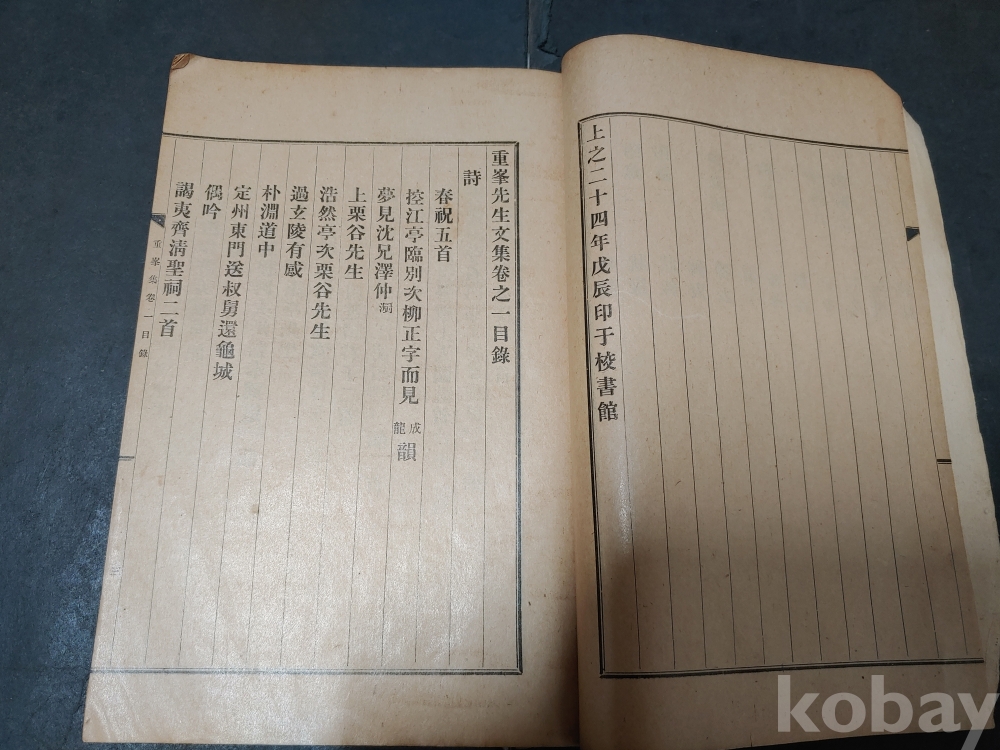 上之二十四年戊辰印于校書館
重峯先生文集卷之一目錄
詩
春祝五首
控江亭臨別次柳正字而見成龍韻
夢見沈兄澤仲
上栗谷先生
浩然亭次栗谷先生
過玄陵有感
朴淵道中
定州東門送叔舅還龜城
偶吟
謁夷齊淸聖祠二首
重峯集卷一 目錄
kobay